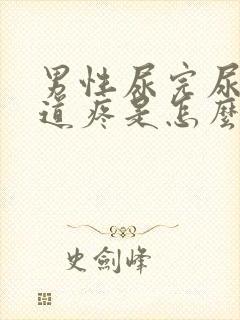 男性尿完尿
道疼是怎麼
史劍峰